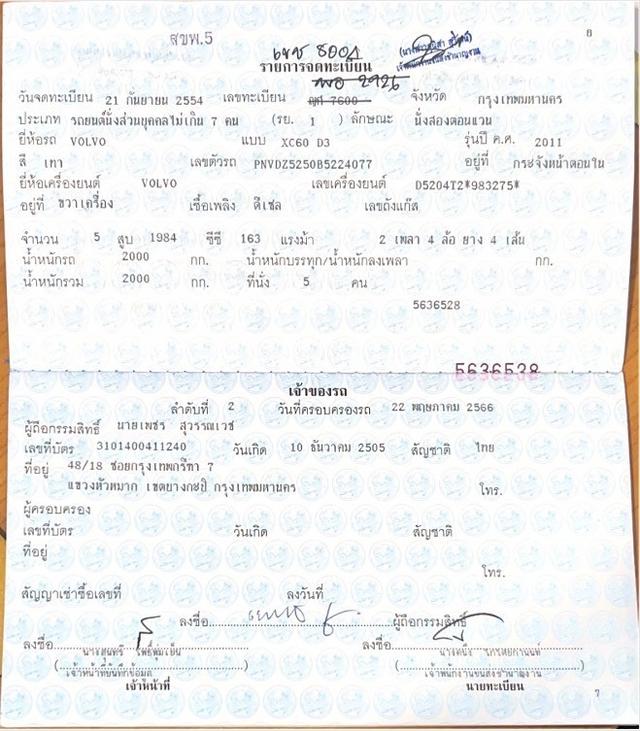 8
สขพ.5
รายการจดทะเบียน
วันจดทะเบียน 21 กันยายน 2554 เลขทะเบียน 7600 จังหวัด กรุงเทพมหานคร
ประเภท รถยนต์นั่งส่วนบุคคลไม่เกิน 7 คน (รย. 1 ) ลักษณะ นั่งสองตอนแวน
ยี่ห้อรถ VOLVO แบบ XC60 D3 รุ่นปี ค.ศ. 2011
สี เทา เลขตัวรถ PNVDZ5250B5224077 อยู่ที่ กระจังหน้าตอนใน
ยี่ห้อเครื่องยนต์ VOLVO เลขเครื่องยนต์ D5204T2*983275*
อยู่ที่ ขวาเครื่อง เชื้อเพลิง ดีเซล เลขถังแก๊ส
จำนวน 5 สูบ 1984 ซีซี 163 แรงม้า 2 เพลา 4 ล้อ ยาง 4 เส้น
น้ำหนักรถ 2000 กก. น้ำหนักบรรทุก/น้ำหนักลงเพลา กก.
น้ำหนักรวม 2000 กก. ที่นั่ง 5 คน
5636528
5636538
เจ้าของรถ
ลำดับที่ 2 วันที่ครอบครองรถ 22 พฤษภาคม 2566
ผู้ถือกรรมสิทธิ์ นายเพชร สุวรรณเวช
เลขที่บัตร 3101400411240 วันเกิด 10 ธันวาคม 2505 สัญชาติ ไทย
ที่อยู่ 48/18 ซอยกรุงเทพกรีฑา 7
แขวงหัวหมาก เขตบางกะปิ กรุงเทพมหานคร โทร.
ผู้ครอบครอง
เลขที่บัตร วันเกิด สัญชาติ
ที่อยู่
โทร.
สัญญาเช่าซื้อเลขที่ ลงวันที่
ลงชื่อ ผู้ถือกรรมสิทธิ์
ลงชื่อ ลงชื่อ
เจ้าหน้าที่บันทึกข้อมูล เจ้าพนักงานขนส่งชำนาญงาน
เจ้าหน้าที่ นายทะเบียน
7